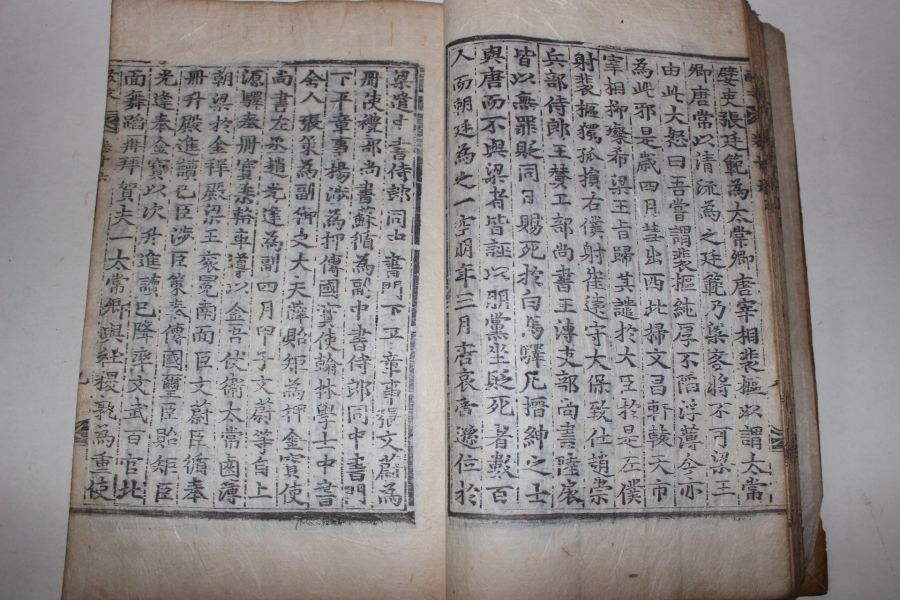 嬖吏張廷範為太常卿唐宰相裴樞以謂太常
卿唐常以清流為之廷範乃梁客將不可梁王
由此大怒曰吾嘗謂裴樞純厚不陷浮薄今亦
為此邪是歲四月彗出西北掃文昌軒轅天市
宰相柳璨希梁王旨歸其譴於大臣於是左僕
射裴樞獨孤損右僕射崔遠守大保致仕趙崇
兵部侍郎王贊工部尚書王溥吏部尚書陸扆
皆以無罪貶同日賜死於白馬驛凡搢紳之士
與唐而不與梁者皆誣以朋黨坐貶死者數百
人而朝廷為之一空明年三月唐哀帝遜位於
梁遣中書侍郎同中書門下平章事張文蔚為
冊使禮部尚書蘇循為副中書侍郎同中書門
下平章事楊涉為押傳國寶使翰林學士中書
舍人張策為副御史大夫薛貽矩為押金寶使
尚書左丞趙光逢為副四月甲子文蔚等自上
源驛奉冊寶乘輅車導以金吾仗衛太常鹵簿
朝梁於金祥殿梁王袞冕南面臣文蔚臣循奉
冊升殿進讀已臣涉臣策奉傳國璽臣貽矩臣
光逢奉金寶以次升進讀已降率文武百官北
面舞蹈再拜賀夫一太常卿與社稷孰為重使